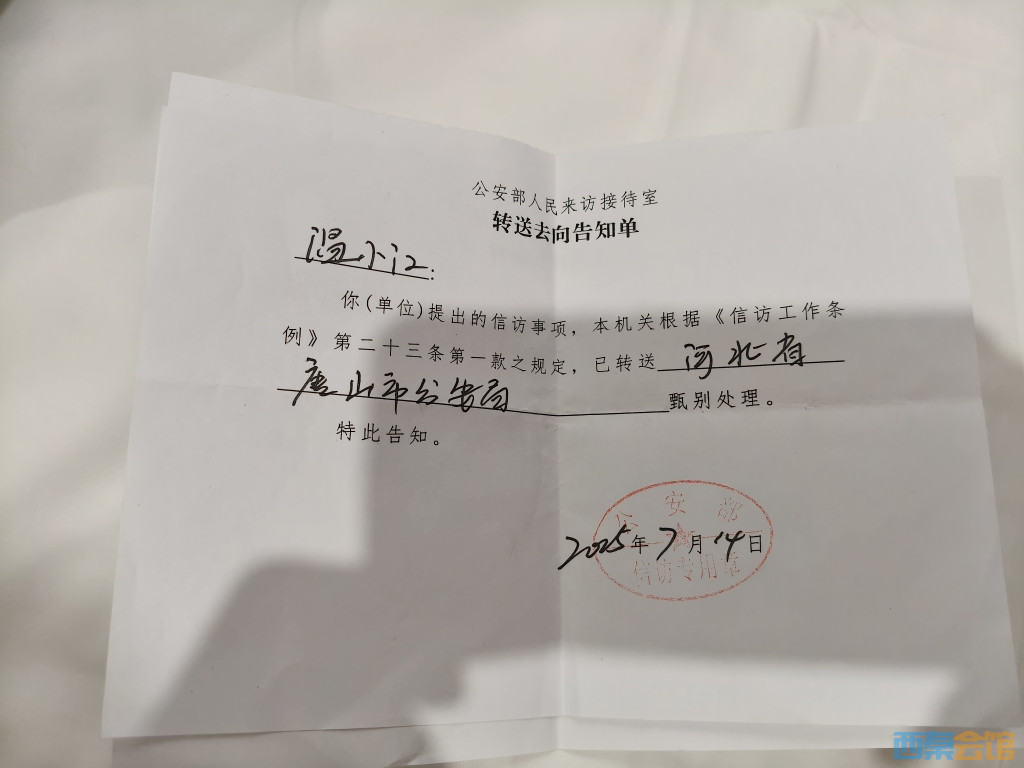 公安部人民来访接待室
转送去向告知单
温小江：
你(单位)提出的信访事项，本机关根据《信访工作条
例》第二十三条第一款之规定，已转送河北省
唐山市公安局甄别处理。
特此告知。
公安部
2025年7月14日
信访专用章
西祠会馆